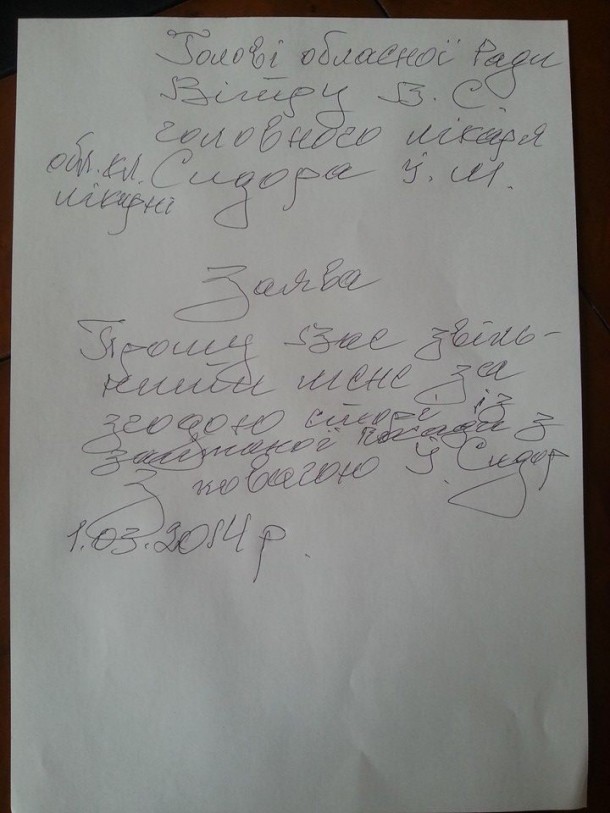 Голові обласної Ради
Війту В. С.
головного лікаря
обл. кл. Сидора Й. М.
лікарні
Заява
Прошу Вас звіль-
нити мене за
згодою сторін із
займаної посади з
З повагою Й. Сидор
1.03.2014 р.